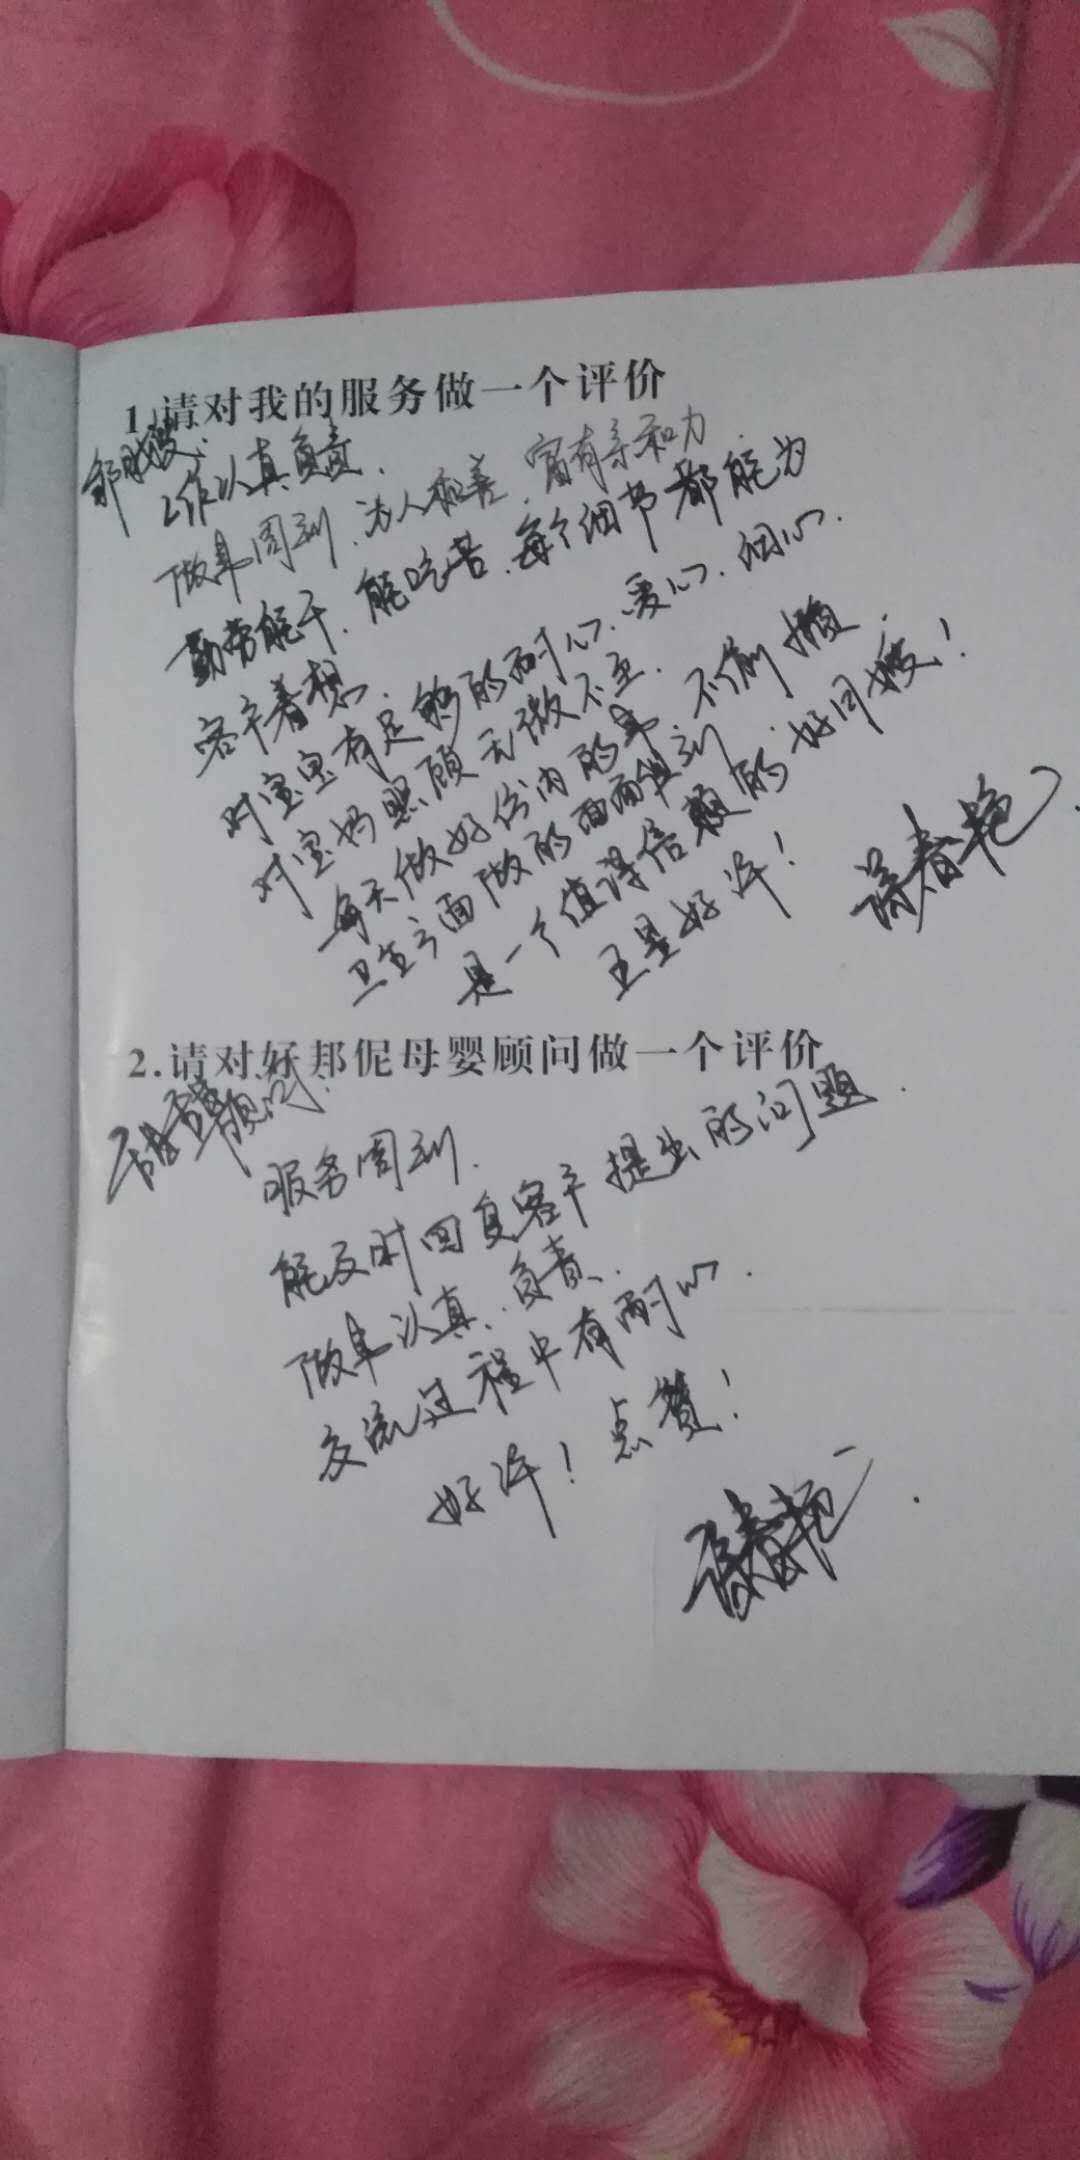 1.请对我的服务做一个评价
月嫂:
工作认真负责.
做事周到.为人和善.富有亲和力
勤劳能干.能吃苦.每个细节都能为
客户着想.
对宝宝有足够的耐心.爱心.细心.
对宝妈照顾无微不至.
每天做好份内的事.不偷懒.
卫生方面做的面面俱到
是一个值得信赖的好月嫂!
五星好评!
春艳
2.请对好邦伲母婴顾问做一个评价
顾问:
服务周到.
能及时回复客户提出的问题.
做事认真、负责.
交流过程中有耐心.
好评!点赞!
春艳